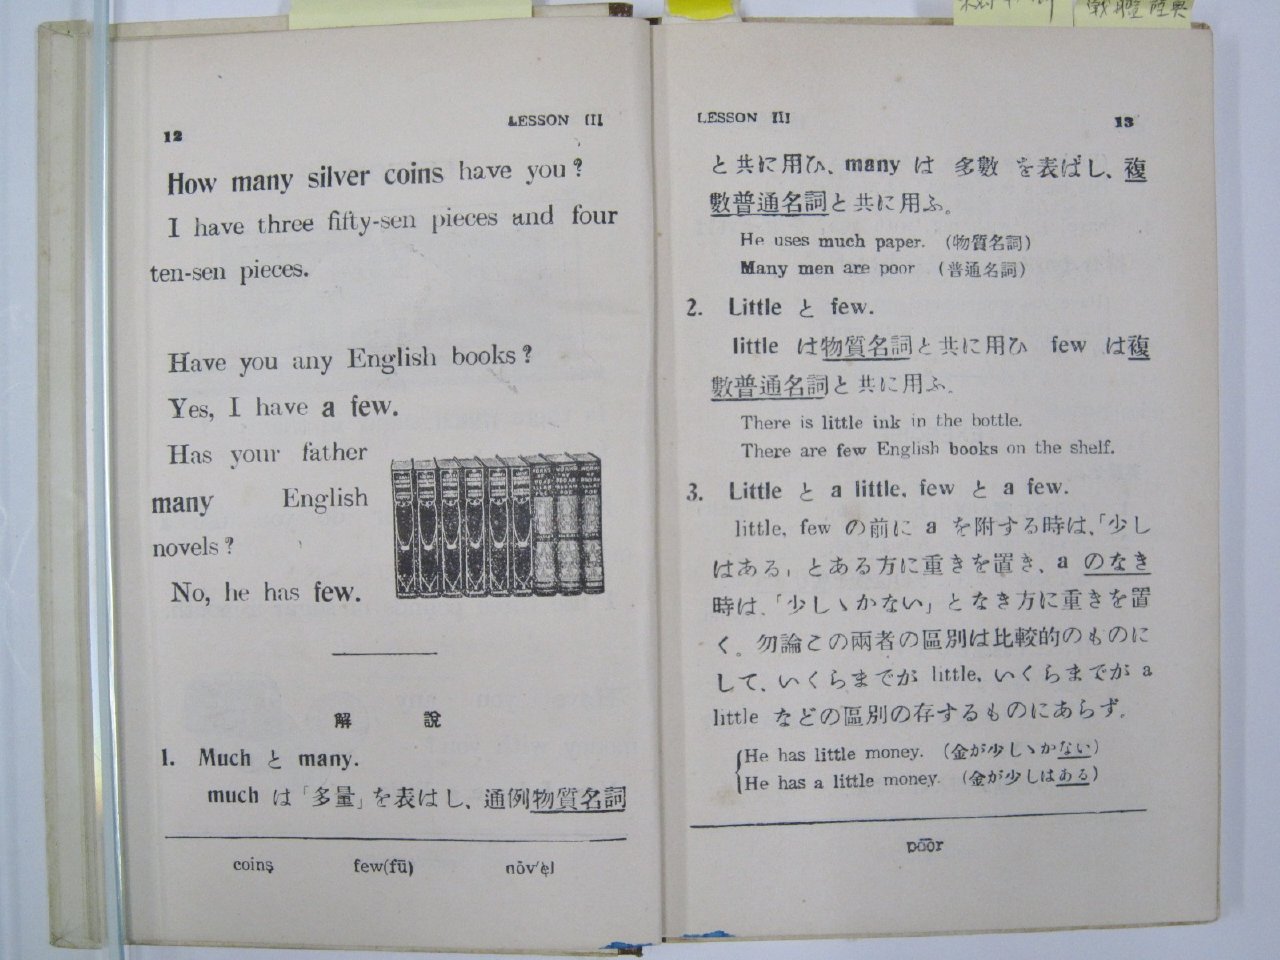 戰艦陸奥
12
LESSON III
How many silver coins have you?
I have three fifty-sen pieces and four
ten-sen pieces.
Have you any English books?
Yes, I have a few.
Has your father
many English
novels?
No, he has few.
解 說
1. Much と many.
much は「多量」を表はし、通例物質名詞
coins few(fū) nŏv'el
LESSON III
13
と共に用ひ、many は 多數 を表ばし、複
數普通名詞と共に用ふ。
He uses much paper. (物質名詞)
Many men are poor (普通名詞)
2. Little と few.
little は物質名詞と共に用ひ few は複
數普通名詞と共に用ふ.
There is little ink in the bottle.
There are few English books on the shelf.
3. Little と a little, few と a few.
little, few の前に a を附する時は、「少し
はある」とある方に重きを置き、a のなき
時は、「少しゝかない」となき方に重きを置
く。勿論この兩者の區別は比較的のものに
して、いくらまでが little, いくらまでが a
little などの區別の存するものにあらず.
He has little money. (金が少しゝかない)
He has a little money. (金が少しはある)
po͞or